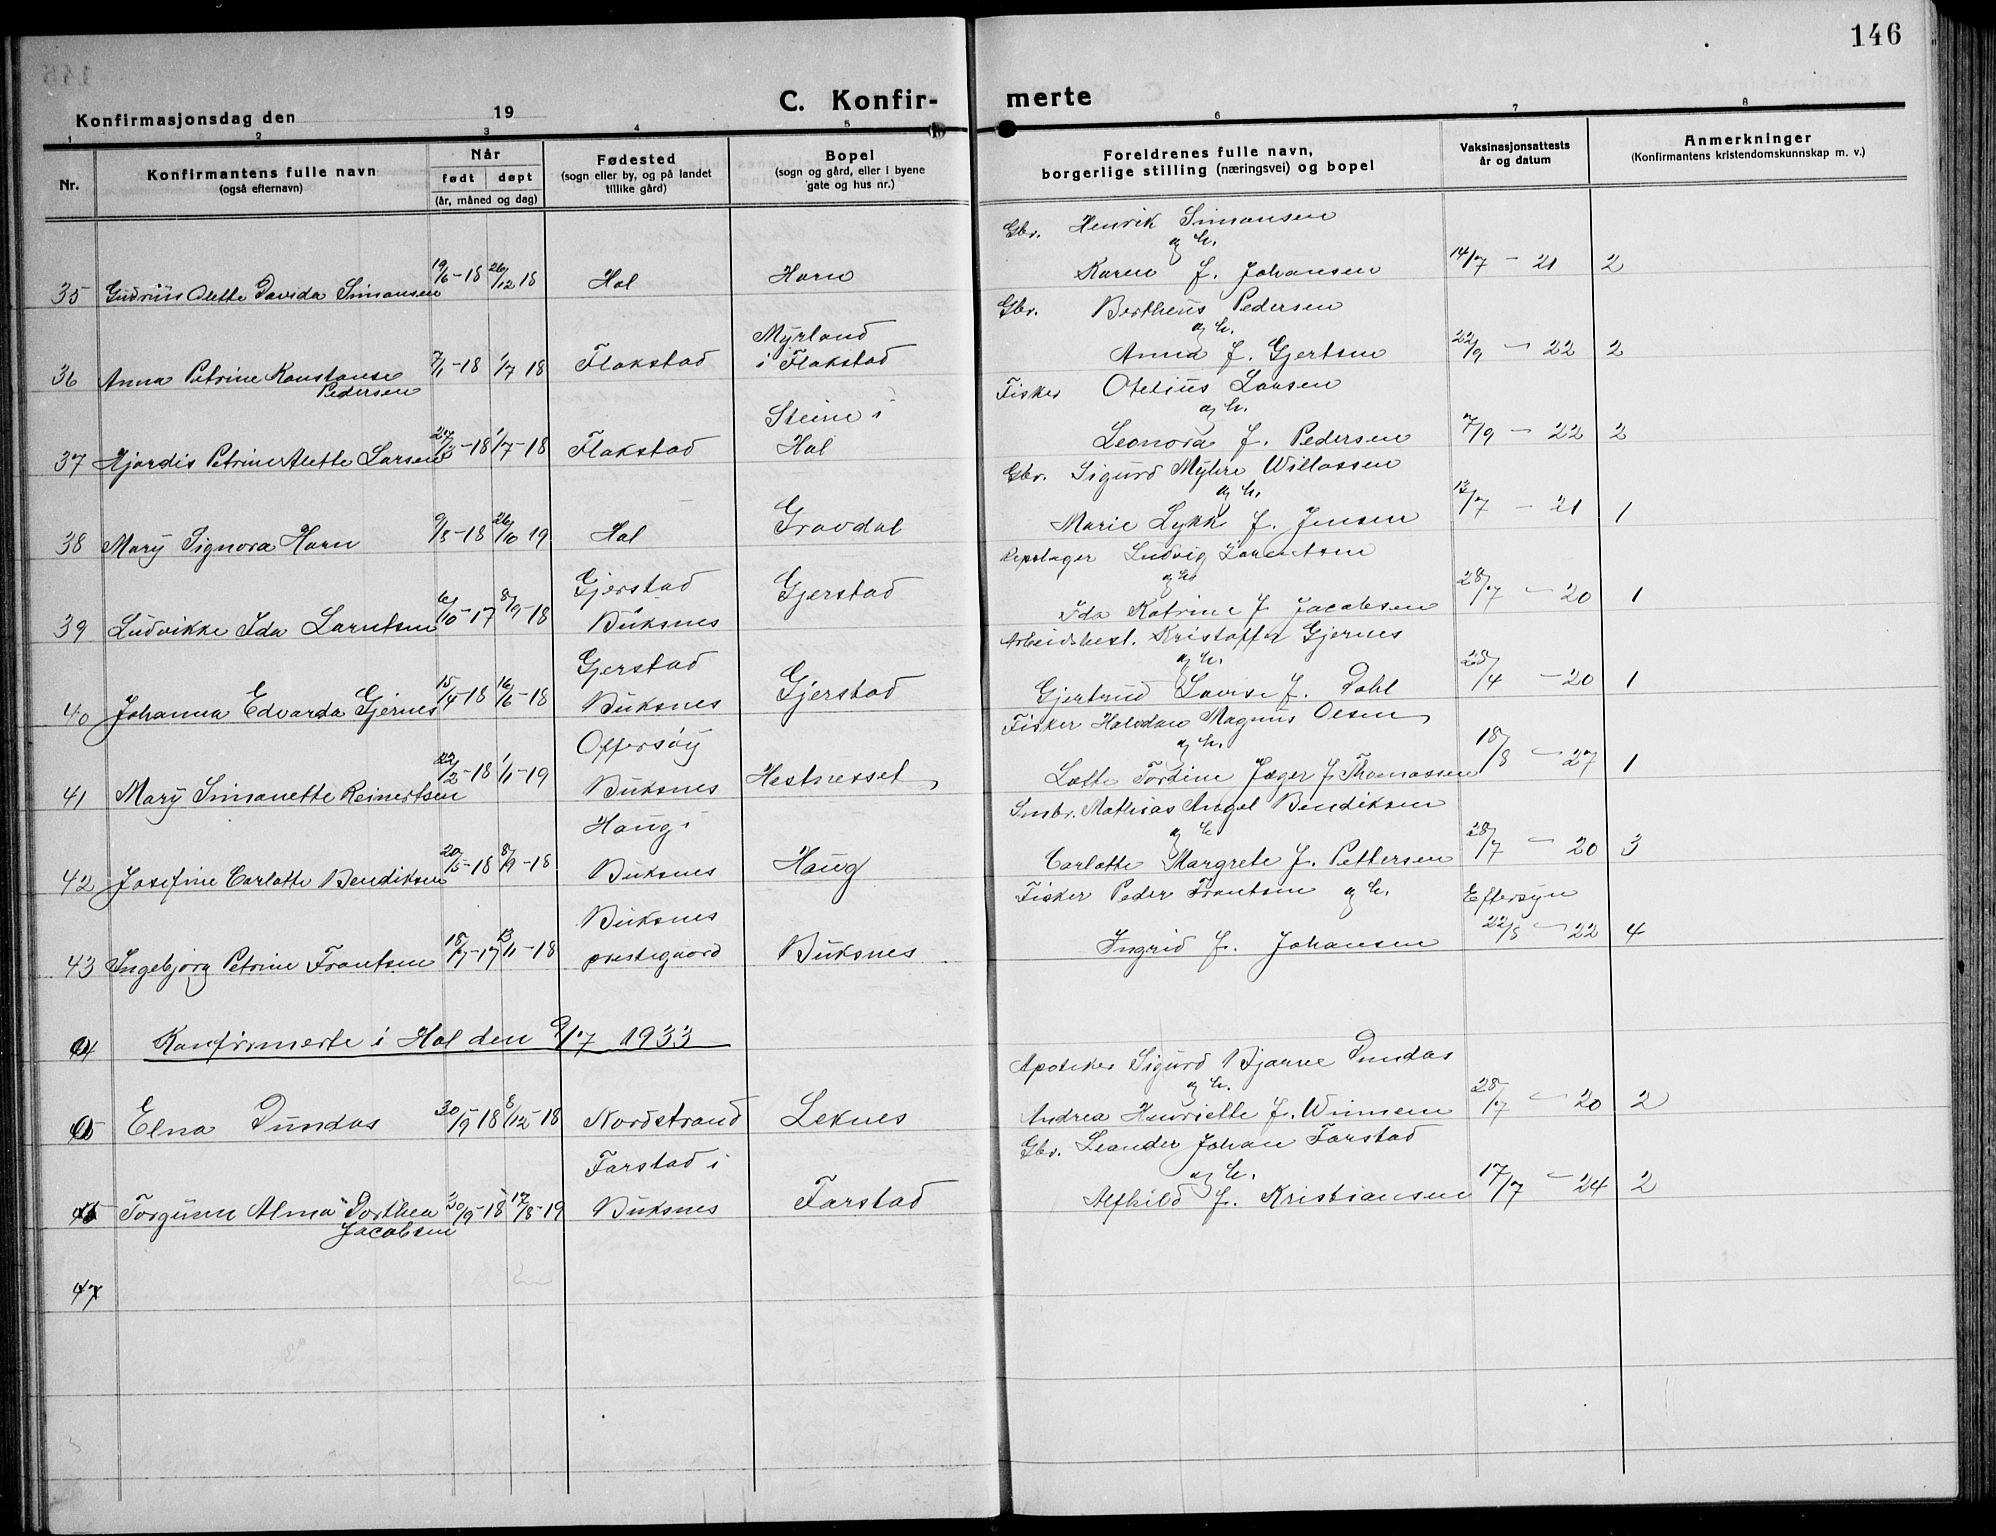 146
C. Konfir- merte
Konfirmasjonsdag den 19
1 2 3 4 5 6 7 8
Nr.
Konfirmantens fulle navn
(også efternavn)
Når
født døpt
(år, måned og dag)
Fødested
(sogn eller by, og på landet
tillike gård)
Bopel
(sogn og gård, eller i byene
gate og hus nr.)
Foreldrenes fulle navn,
borgerlige stilling (næringsvei) og bopel
Vaksinasjonsattests
år og datum
Anmerkninger
(Konfirmantens kristendomskunnskap m. v.)
Gbr. Henrik Simonsen
og h.
35 Gudrun Olette Davida Simonsen 19/6-18 26/12 18 Hol Horn Karen f. Johansen 14/7 - 21 2
Gbr. Bertheus Pedersen
Myrland og h.
36 Anna Petrine Konstanse 7/1-18 1/7 18 Flakstad i Flakstad Anna f. Gjertsen 22/9 - 22 2
Pedersen
Fisker Otelius Larsen
Steine i og h.
37 Hjørdis Petrine Alette Larsen 27/3-18 1/7-18 Flakstad Hol Leonora f. Pedersen 7/9 - 22 2
Gbr. Sigurd Myhre Willassen
og h.
38 Mary Signora Horn 9/5-18 26/10 19 Hol Gravdal Marie Lykke f. Jensen 12/7 - 21 1
Repslager Ludvig Larentsen
Gjerstad og h.
39 Ludvikke Ida Larntsen 6/10-17 8/9-18 Buksnes Gjerstad Ida Katrine f. Jacobsen 28/7 - 20 1
Arbeidsbest. Kristoffer Gjernes
Gjerstad og h.
40 Johanna Edvarda Gjernes 15/4-18 16/6-18 Buksnes Gjerstad Gjertrud Lovise f. Dahl 28/4 - 20 1
Fisker Halvdan Magnus Olsen
Offersøy og h.
41 Mary Simonette Reinertsen 22/2-18 1/1-19 Buksnes Hestnesset Lotte Tordine Jæger f. Thomassen 18/8 - 27 1
Smbr. Mathias Angel Bendiksen
Haug i og h.
42 Josefine Carlotte Bendiksen 20/5-18 8/9-18 Buksnes Haug Carlotte Margrete f. Pettersen 28/7 - 20 3
Fisker Peder Frantsen og h. Eftersyn
Buksnes
43 Ingebjørg Petrine Frantsen 18/7-17 13/1-18 prestegaard Buksnes Ingrid f. Johansen 22/5 - 22 4
44 Konfirmerte i Hol den 9/7 1933
Apoteker Sigurd Bjarne Dundas
og h.
45 Elna Dundas 30/9-18 8/12-18 Nordstrand Leknes Andrea Henriette f. Winnem 28/7 - 20 2
Gbr. Leander Johan Farstad
Farstad i og h.
46 Torgunn Alma Dorthea 30/9-18 17/8-19 Buksnes Farstad Alfhild f. Kristiansen 17/7 - 24 2
Jacobsen
47